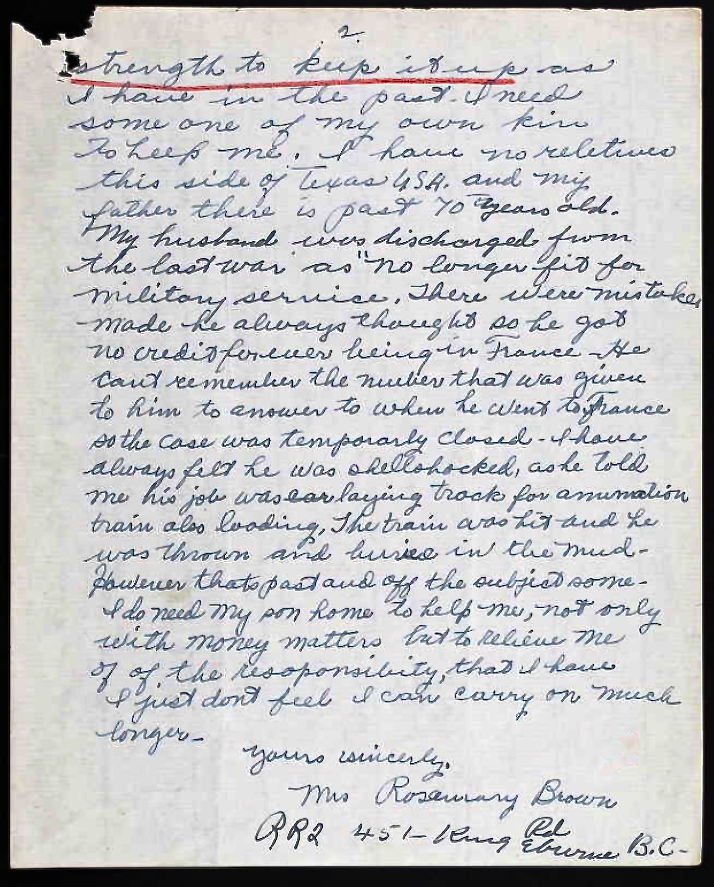 2.
strength to keep it up as
I have in the past. I need
some one of my own kin
To help me. I have no reletives
this side of Texas USA. and my
father there is past 70 years old.
My husband was discharged from
the last war as "no longer fit for
military service. There were mistakes
made he always thought so he got
no credit for ever being in France - He
cant remember the number that was given
to him to answer to when he went to France
so the case was temporarly closed - I have
always felt he was shellshocked, as he told
me his job was laying track for amunation
train also loading. The train was hit and he
was thrown and buried in the mud -
However thats past and off the subject some -
I do need my son home to help me, not only
with money matters but to relieve me
of of the resoponsibility, that I have
I just dont feel I can carry on much
longer -
Yours sincerly.
Mrs Rosemary Brown
RR2 451 - King Rd
Eburne B.C -